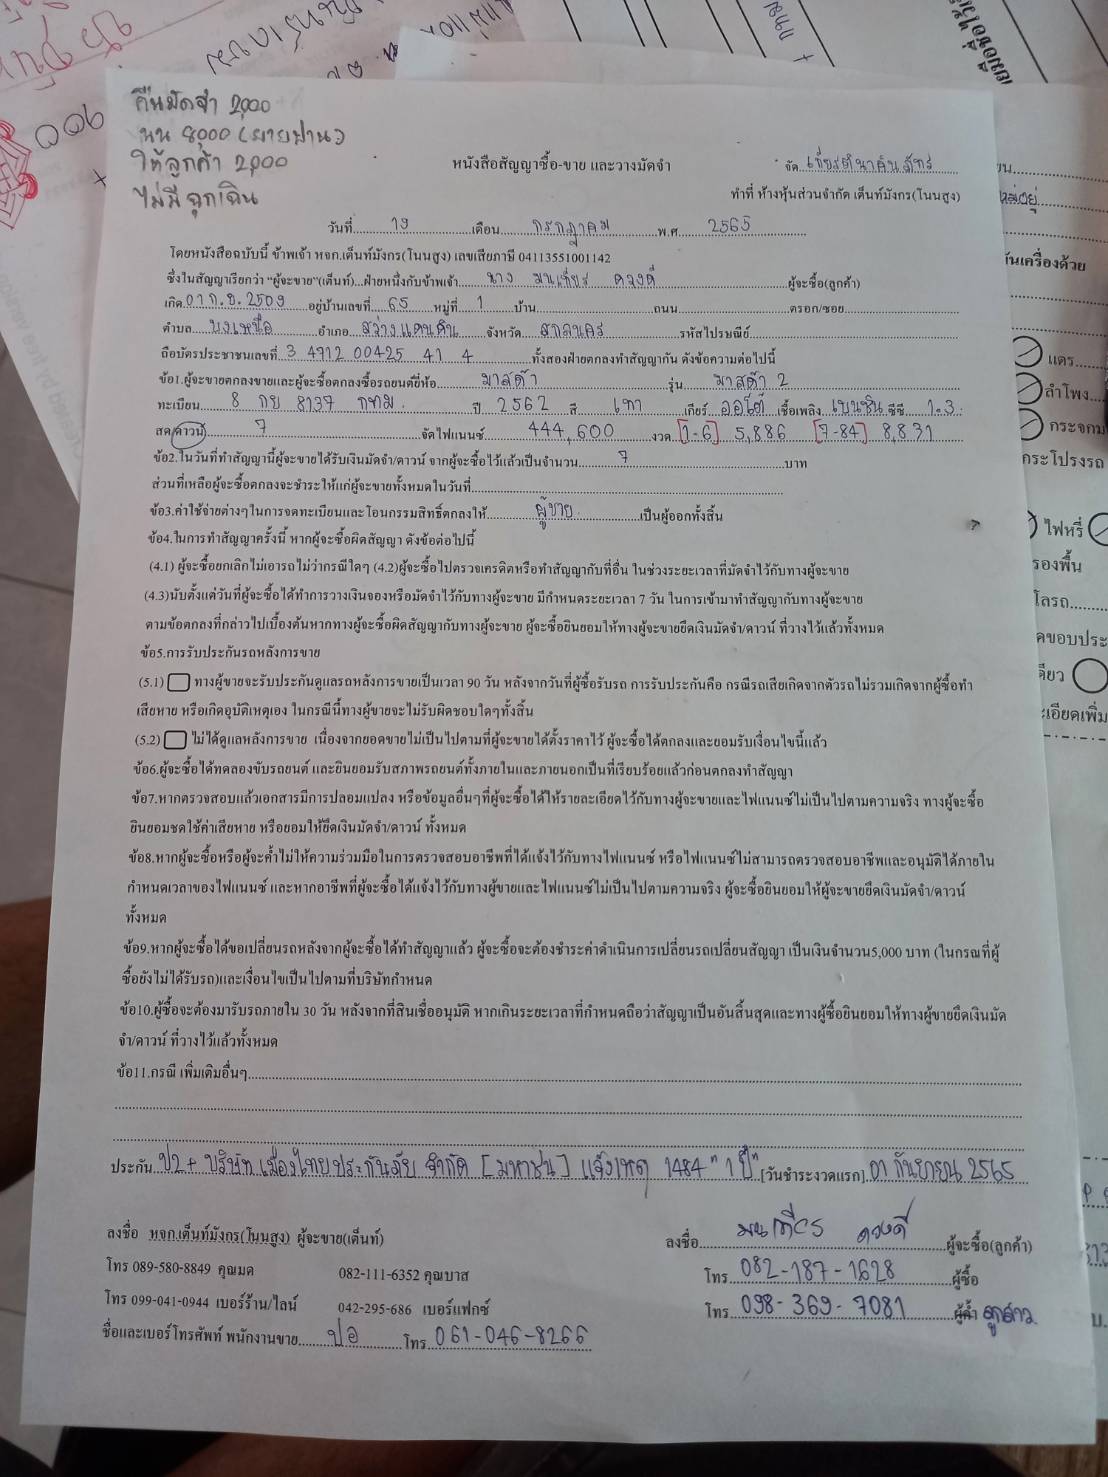 คืนมัดจำ 2,000
นน 8,000 (นายผ่าน)
ให้ลูกค้า 2,000
ไม่มี ฉุกเฉิน
หนังสือสัญญาซื้อ-ขาย และวางมัดจำ
จัด เกียรตินาคินภัทร
ทำที่ ห้างหุ้นส่วนจำกัด เต็นท์มังกร(โนนสูง)
วันที่ 19 เดือน กรกฎาคม พ.ศ. 2565
โดยหนังสือฉบับนี้ ข้าพเจ้า หจก.เต็นท์มังกร(โนนสูง) เลขเสียภาษี 04113551001142
ซึ่งในสัญญาเรียกว่า "ผู้จะขาย"(เต็นท์)...ฝ่ายหนึ่งกับข้าพเจ้า นาง มนเทียร ดวงดี ผู้จะซื้อ(ลูกค้า)
เกิด 01 ก.ย. 2509 อยู่บ้านเลขที่ 65 หมู่ที่ 1 บ้าน ถนน ตรอก/ซอย
ตำบล บงเหนือ อำเภอ สว่างแดนดิน จังหวัด สกลนคร รหัสไปรษณีย์
ถือบัตรประชาชนเลขที่ 3 4712 00425 41 4 ทั้งสองฝ่ายตกลงทำสัญญากัน ดังข้อความต่อไปนี้
ข้อ1.ผู้จะขายตกลงขายและผู้จะซื้อตกลงซื้อรถยนต์ยี่ห้อ มาสด้า รุ่น มาสด้า 2
ทะเบียน 8 กย 8137 กทม. ปี 2562 สี เทา เกียร์ ออโต้ เชื้อเพลิง เบนซิน ซีซี 1.3
สด/ดาวน์ 7 จัดไฟแนนซ์ 444,600 งวด [1-6] 5,886 [7-84] 8,831
ข้อ2.ในวันที่ทำสัญญานี้ผู้จะขายได้รับเงินมัดจำ/ดาวน์ จากผู้จะซื้อไว้แล้วเป็นจำนวน 7 บาท
ส่วนที่เหลือผู้จะซื้อตกลงจะชำระให้แก่ผู้จะขายทั้งหมดในวันที่
ข้อ3.ค่าใช้จ่ายต่างๆในการจดทะเบียนและโอนกรรมสิทธิ์ตกลงให้ ผู้ขาย เป็นผู้ออกทั้งสิ้น
ข้อ4.ในการทำสัญญาครั้งนี้ หากผู้จะซื้อผิดสัญญา ดังข้อต่อไปนี้
(4.1) ผู้จะซื้อยกเลิกไม่เอารถไม่ว่ากรณีใดๆ (4.2)ผู้จะซื้อไปตรวจเครดิตหรือทำสัญญากับที่อื่น ในช่วงระยะเวลาที่มัดจำไว้กับทางผู้จะขาย
(4.3)นับตั้งแต่วันที่ผู้จะซื้อได้ทำการวางเงินจองหรือมัดจำไว้กับทางผู้จะขาย มีกำหนดระยะเวลา 7 วัน ในการเข้ามาทำสัญญากับทางผู้จะขาย
ตามข้อตกลงที่กล่าวไปเบื้องต้นหากทางผู้จะซื้อผิดสัญญากับทางผู้จะขาย ผู้จะซื้อยินยอมให้ทางผู้จะขายยึดเงินมัดจำ/ดาวน์ ที่วางไว้แล้วทั้งหมด
ข้อ5.การรับประกันรถหลังการขาย
(5.1) ทางผู้ขายจะรับประกันดูแลรถหลังการขายเป็นเวลา 90 วัน หลังจากวันที่ผู้ซื้อรับรถ การรับประกันคือ กรณีรถเสียเกิดจากตัวรถไม่รวมเกิดจากผู้ซื้อทำ
เสียหาย หรือเกิดอุบัติเหตุเอง ในกรณีนี้ทางผู้ขายจะไม่รับผิดชอบใดๆทั้งสิ้น
(5.2) ไม่ได้ดูแลหลังการขาย เนื่องจากยอดขายไม่เป็นไปตามที่ผู้จะขายได้ตั้งราคาไว้ ผู้จะซื้อได้ตกลงและยอมรับเงื่อนไขนี้แล้ว
ข้อ6.ผู้จะซื้อได้ทดลองขับรถยนต์ และยินยอมรับสภาพรถยนต์ทั้งภายในและภายนอกเป็นที่เรียบร้อยแล้วก่อนตกลงทำสัญญา
ข้อ7.หากตรวจสอบแล้วเอกสารมีการปลอมแปลง หรือข้อมูลอื่นๆที่ผู้จะซื้อได้ให้รายละเอียดไว้กับทางผู้จะขายและไฟแนนซ์ไม่เป็นไปตามความจริง ทางผู้จะซื้อ
ยินยอมชดใช้ค่าเสียหาย หรือยอมให้ยึดเงินมัดจำ/ดาวน์ ทั้งหมด
ข้อ8.หากผู้จะซื้อหรือผู้จะค้ำไม่ให้ความร่วมมือในการตรวจสอบอาชีพที่ได้แจ้งไว้กับทางไฟแนนซ์ หรือไฟแนนซ์ไม่สามารถตรวจสอบอาชีพและอนุมัติได้ภายใน
กำหนดเวลาของไฟแนนซ์ และหากอาชีพที่ผู้จะซื้อได้แจ้งไว้กับทางผู้ขายและไฟแนนซ์ไม่เป็นไปตามความจริง ผู้จะซื้อยินยอมให้ผู้จะขายยึดเงินมัดจำ/ดาวน์
ทั้งหมด
ข้อ9.หากผู้จะซื้อได้ขอเปลี่ยนรถหลังจากผู้จะซื้อได้ทำสัญญาแล้ว ผู้จะซื้อจะต้องชำระค่าดำเนินการเปลี่ยนรถเปลี่ยนสัญญา เป็นเงินจำนวน5,000 บาท (ในกรณีที่ผู้
ซื้อยังไม่ได้รับรถ)และเงื่อนไขเป็นไปตามที่บริษัทกำหนด
ข้อ10.ผู้ซื้อจะต้องมารับรถภายใน 30 วัน หลังจากที่สินเชื่ออนุมัติ หากเกินระยะเวลาที่กำหนดถือว่าสัญญาเป็นอันสิ้นสุดและทางผู้ซื้อยินยอมให้ทางผู้ขายยึดเงินมัด
จำ/ดาวน์ ที่วางไว้แล้วทั้งหมด
ข้อ11.กรณี เพิ่มเติมอื่นๆ
ประกัน ป2+ บริษัท เมืองไทยประกันภัย จำกัด [มหาชน] แจ้งเหตุ 1484 "1 ปี" [วันชำระงวดแรก] 01 กันยายน 2565
ลงชื่อ หจก.เต็นท์มังกร(โนนสูง) ผู้จะขาย(เต็นท์)
ลงชื่อ มนเทียร ดวงดี ผู้จะซื้อ(ลูกค้า)
โทร 089-580-8849 คุณมด 082-111-6352 คุณบาส
โทร 082-187-1628 ผู้ซื้อ
โทร 099-041-0944 เบอร์ร้าน/ไลน์ 042-295-686 เบอร์แฟกซ์
โทร 098-369-7081 ผู้ค้ำ ลูกสาว
ชื่อและเบอร์โทรศัพท์ พนักงานขาย ปอ โทร 061-046-8266
แตร
ลำโพง
กระจกม
กระโปรงรถ
ไฟหรี่
รองพื้น
โลรถ
คขอบประ